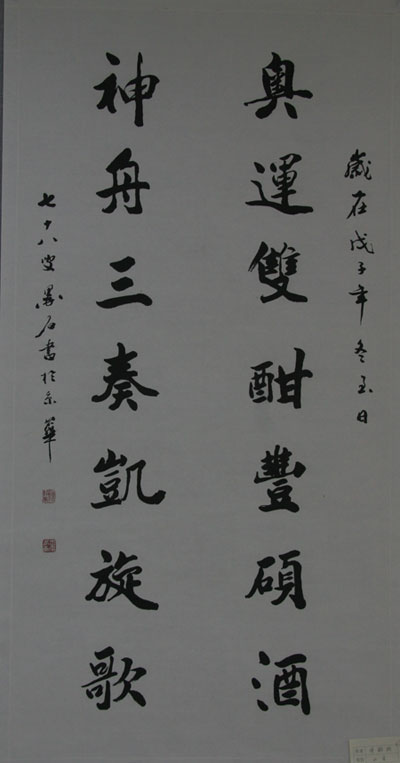 歲在戊子年冬至日
奥運雙酣豐碩酒
神舟三奏凱旋歌
七十八叟墨石書於京華